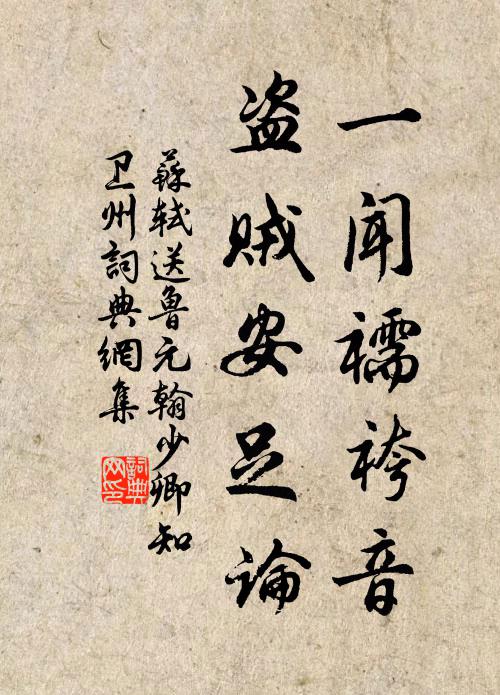 一闻襦袴音
盗贼安足论
蘇轼送鲁元翰少卿知
卫州詞典網集
詞典网印